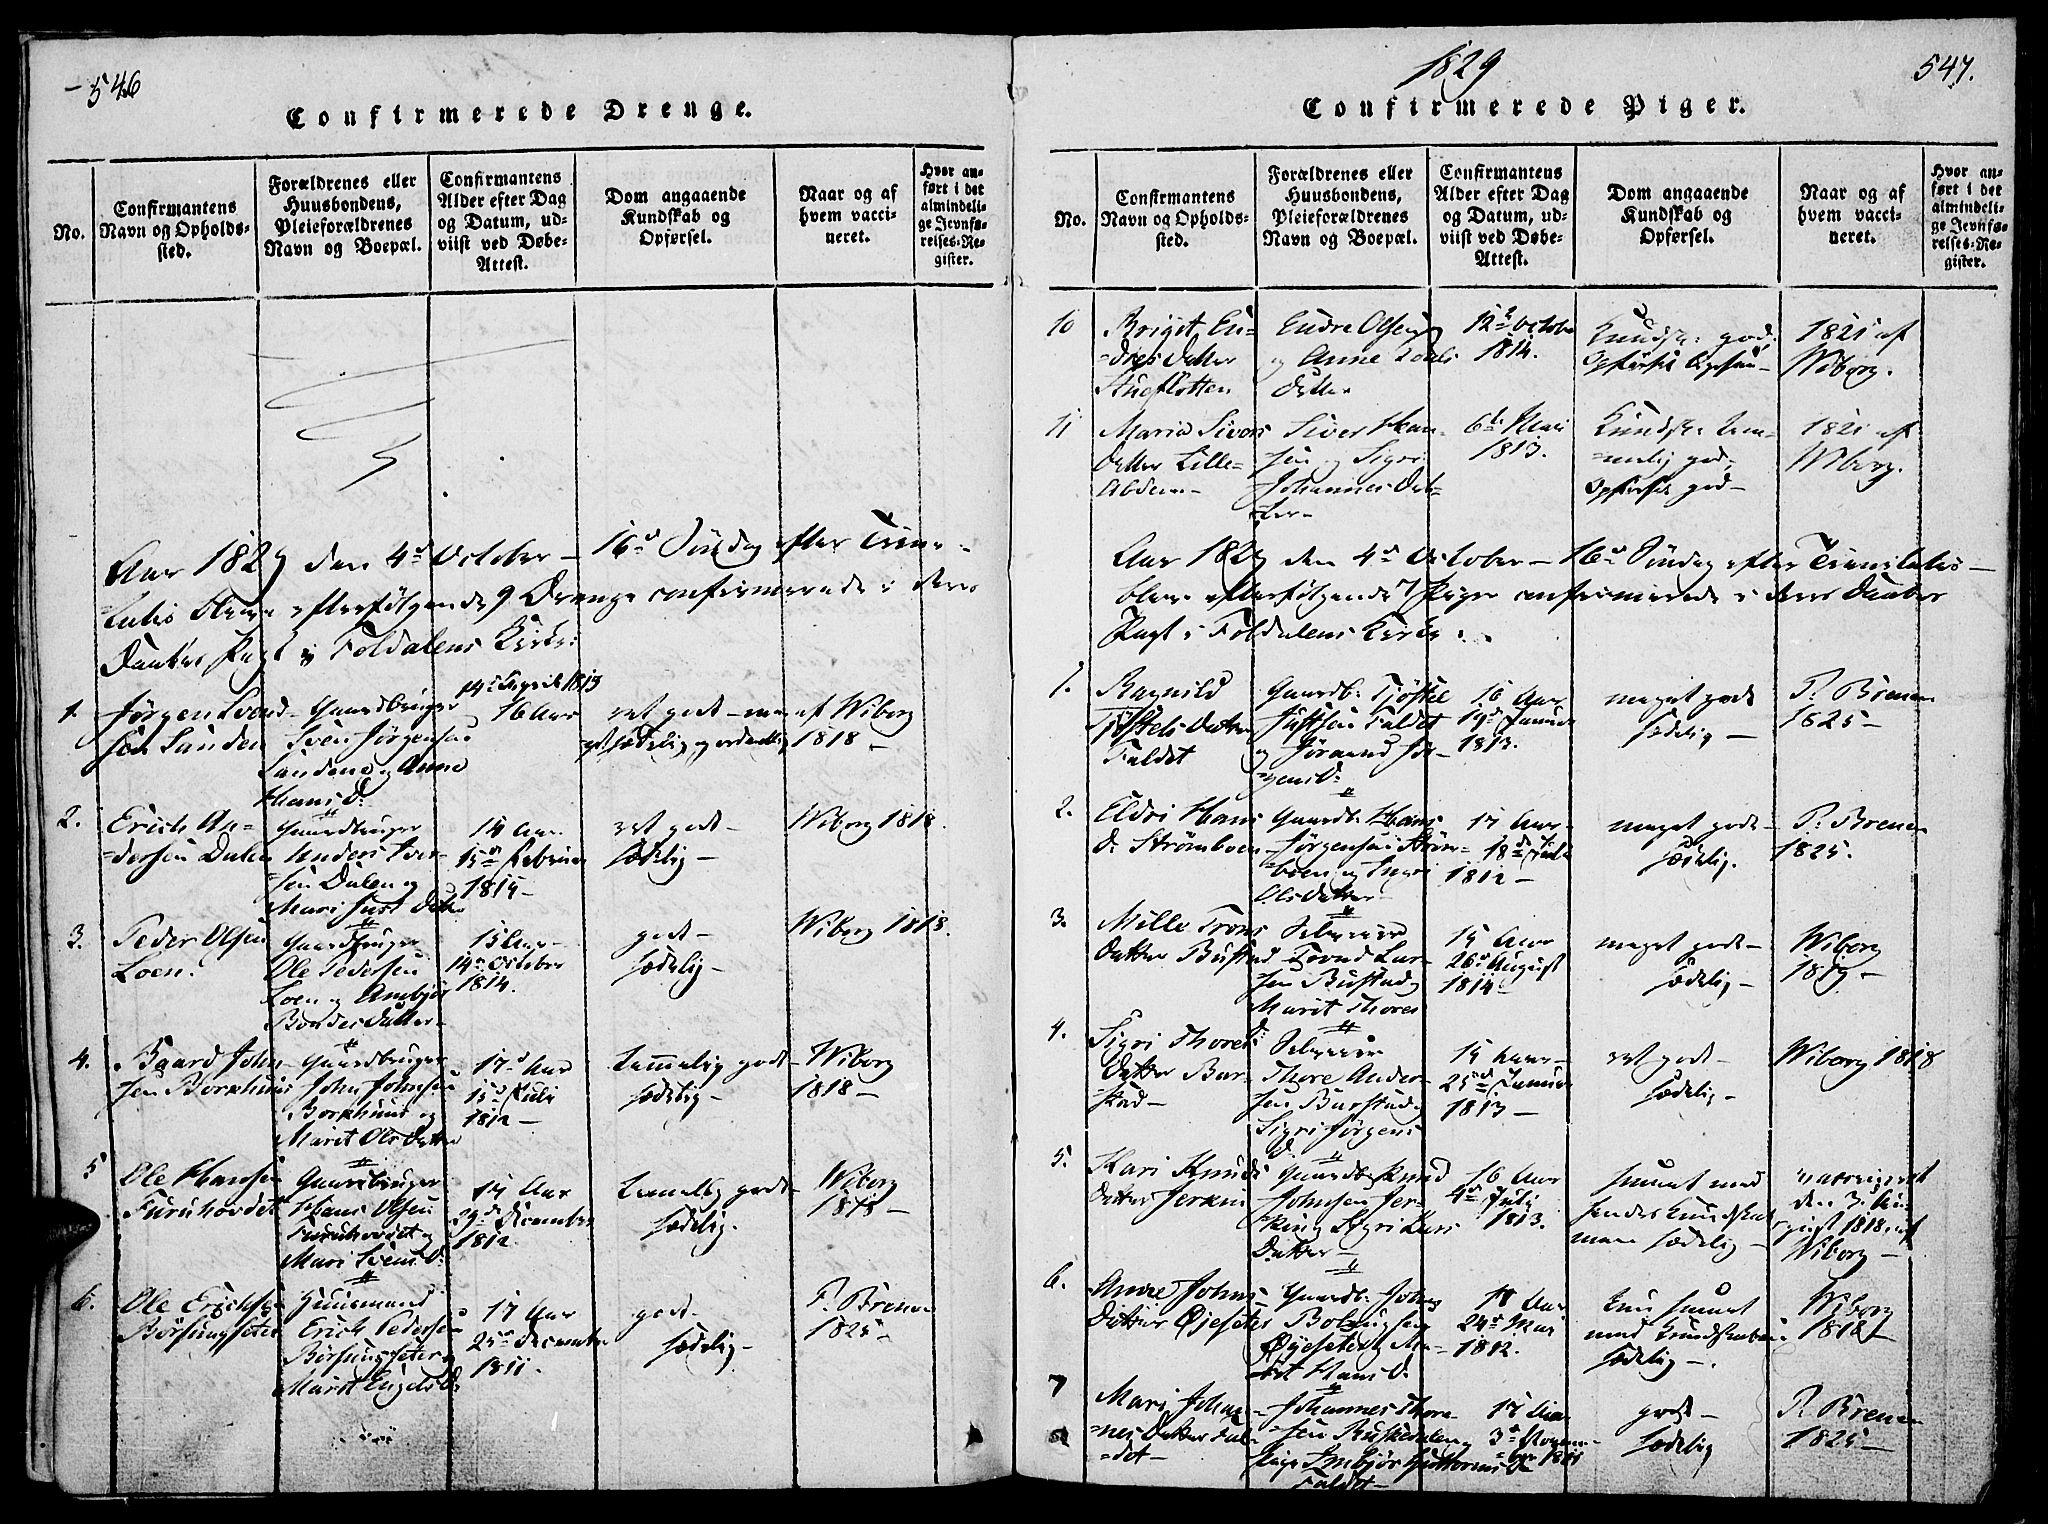 546
Confirmerede Drenge.
No.
Confirmantens
Navn og Opholds-
sted.
Forældrenes eller
Huusbondens,
Pleieforældrenes
Navn og Boepæl.
Confirmantens
Alder efter Dag
og Datum, ud-
viist ved Døbe-
Attest.
Dom angaaende
Kundskab og
Opførsel.
Naar og af
hvem vacci-
neret.
Hvor an-
ført i det
almindeli-
ge Jevnfø-
relses-Re-
gister.
Aar 1829 den 4de October - 16de Søndag efter Trini-
=tatis bleve efterfølgende 9 Drenge confirmerede i deres
Daabes Pagt i Foldalens Kirke:
1.
Jørgen Svend-
sen Sanden
Gaardbruger
Sven Jørgensen
Sandene og Anne
Hans D:
14de April 1813
16 Aar
ret godt
sædelig
af Wiborg
1818 -
2.
Erich An=
=dersen Dalen
Gaardbruger
Anders Iver-
sen Dalen og
Mari Just Datter
14 Aar
15de Februar
1815
ret godt -
sædelig -
Wiborg 1818.
3.
Peder Olsen
Loen.
Gaardbruger
Ole Pedersen
Loen og Ambjør
Bondes Datter -
15 Aar -
14de October
1814.
godt -
sædelig -
Wiborg 1818.
4.
Baard John-
sen Borkhuus
Gaardbruger
John Johnsen
Borkhuus og
Marit Ols Datter
17de Aar
15de Juli
1812 -
temmelig godt
sædelig -
Wiborg
1818 -
5
Ole Hansen
Furuhovdet
Gaardbruger
Hans Olsen
Furuhovdet og
Mari Svens D:
17 Aar
29de December
1812.
temmelig godt -
sædelig.
Wiborg
1818 -
6.
Ole Erichsen
Børsungseter
Huusmand
Erich Pedersen
Børsungseter og
Marit Engels D:
17 Aar
25de December
1811.
godt -
sædelig -
P. Brenen
1825 -
1829
547.
Confirmerede Piger.
No.
Confirmantens
Navn og Opholds-
sted.
Forældrenes eller
Huusbondens,
Pleieforældrenes
Navn og Boepæl.
Confirmantens
Alder efter Dag
og Datum, ud-
viist ved Døbe-
Attest.
Dom angaaende
Kundskab og
Opførsel.
Naar og af
hvem vacci-
neret.
Hvor an-
ført i det
almindeli-
ge Jevnfø-
relses-Re-
gister.
10
Briget En-
=dres Datter
Stueflotten
Endre Olsen
og Anne
Datter
12te October
1814.
Kundsk: god,
Opførsel
1821 af
Wiborg.
11
Maria Sivers
Datter Lille-
Siver Han-
sen og Sigri
Johannes Dat-
ter -
6te Mai
1813.
Kundsk: tem-
melig god,
Opførsel god -
1821 af
Wiborg.
Aar 1829 den 4de October - 16de Søndag efter Trinitatis -
bleve efterfølgende 7 Piger confirmerede i deres Daabes
Pagt i Foldalens Kirke:
1.
Ragnild
Tjøstels Datter
Faldet
Gaardb: Tjøstel
Justsen Faldet
og Jøraand Jør-
=gens D:
16 Aar
19de Januar
1813.
meget godt
sædelig -
P. Brenen
1825 -
2.
Eldri Hans
D: Strømboen
Gaardb: Hans
Jørgensen Strøm-
boen og Ingri
Ols Datter -
17 Aar -
18de Juli
1812 -
meget godt -
sædelig.
P: Brenen
1825.
3.
Mille Trons
Datter Bustad
Trond Lar-
sen Bustad og
Marit Thores
D:
15 Aar
26de August
1814 -
meget godt -
sædelig -
Wiborg
1819 -
4.
Sigri Thores
Datter Bur-
stad -
Thore Ander-
sen Burstad og
Sigri Jørgens
D:
15 Aar -
25de Januar
1813 -
ret godt -
sædelig -
Wiborg 1818
5.
Kari Knuds
Datter Jerkin
Gaardb: Knud
Johnsen Jer-
kin og Sigri Lars
Datter -
16 Aar
4de Juli
1813.
smaat med
hendes Kundskab
men sædelig -
vaccineret
den 3. Au-
gust 1818 af
Wiborg -
6.
Anne Johns
Datter Øjeseter
Gaardb: John
Øyeseter og Ma-
rit Hans D:
17 Aar
24de Mai
1812.
kun smaat
med Kundskaben
sædelig -.
Wiborg
1818 -
7
Mari Johan-
nes Datter Fal-
=det -
Johannes Thore-
sen
Faldet -
17 Aar
3de Novem-
=ber 1811
godt -
sædelig
P. Brenen
1825 -